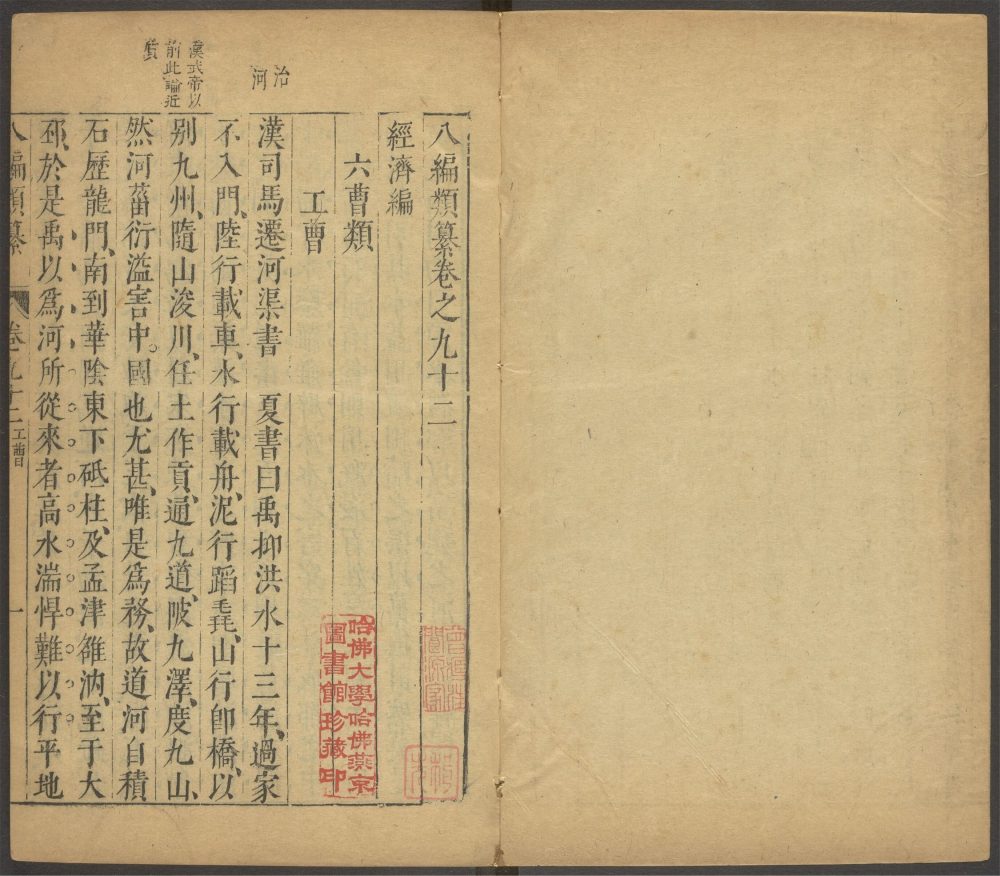 八編類纂卷之九十二
經濟編
六曹類
工曹
漢司馬遷河渠書 夏書曰禹抑洪水十三年、過家
不入門、陸行載車、水行載舟、泥行蹈毳、山行卽橋、以
别九州、隨山浚川、任土作貢、通九道、陂九澤、度九山、
然河菑衍溢害中國也尤甚、唯是爲務、故道河自積
石歷龍門、南到華陰東下砥柱、及孟津雒汭、至于大
邳、於是禹以爲河所從來者高水湍悍難以行平地
八編類纂 卷九十二 工曹 一
治河
漢武帝以
前此論近
實
哈佛大學哈佛燕京
圖書館珍藏印